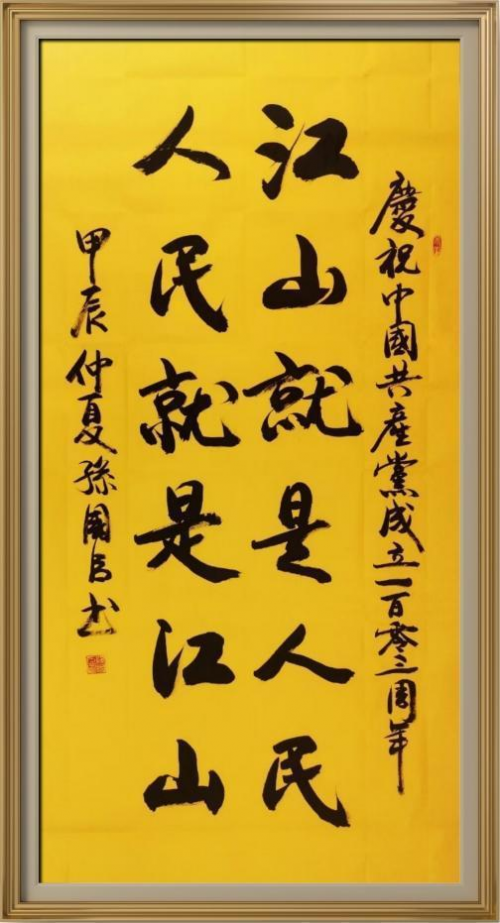 慶祝中國共產黨成立一百零三周年
江山就是人民
人民就是江山
甲辰仲夏孫國
书